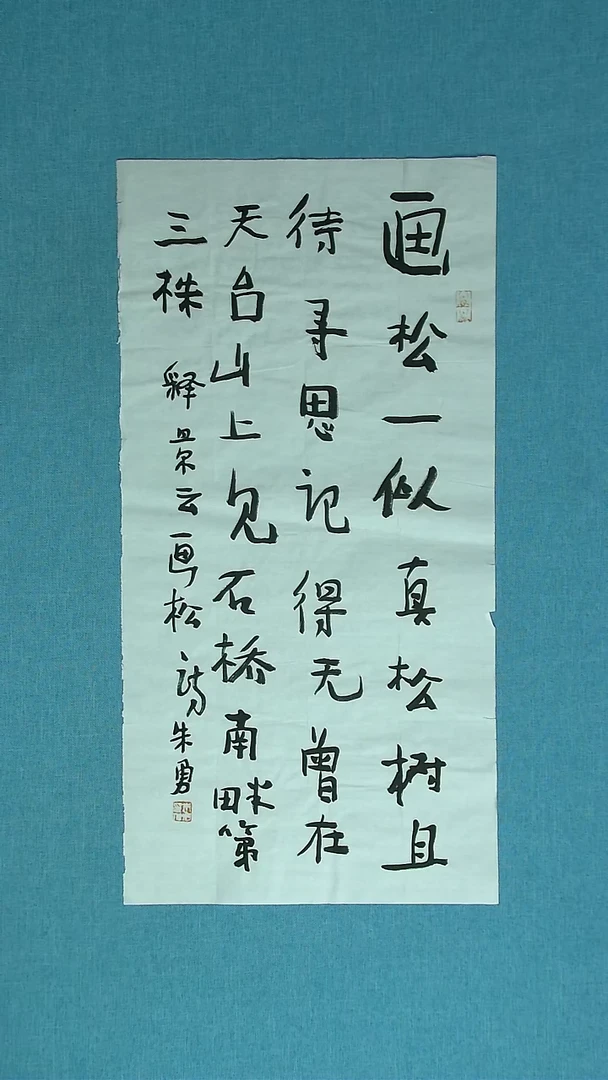 画松一似真松树且
待寻思记得无曾在
天台山上见石桥南畔第
三株 释景云画松诗 朱勇